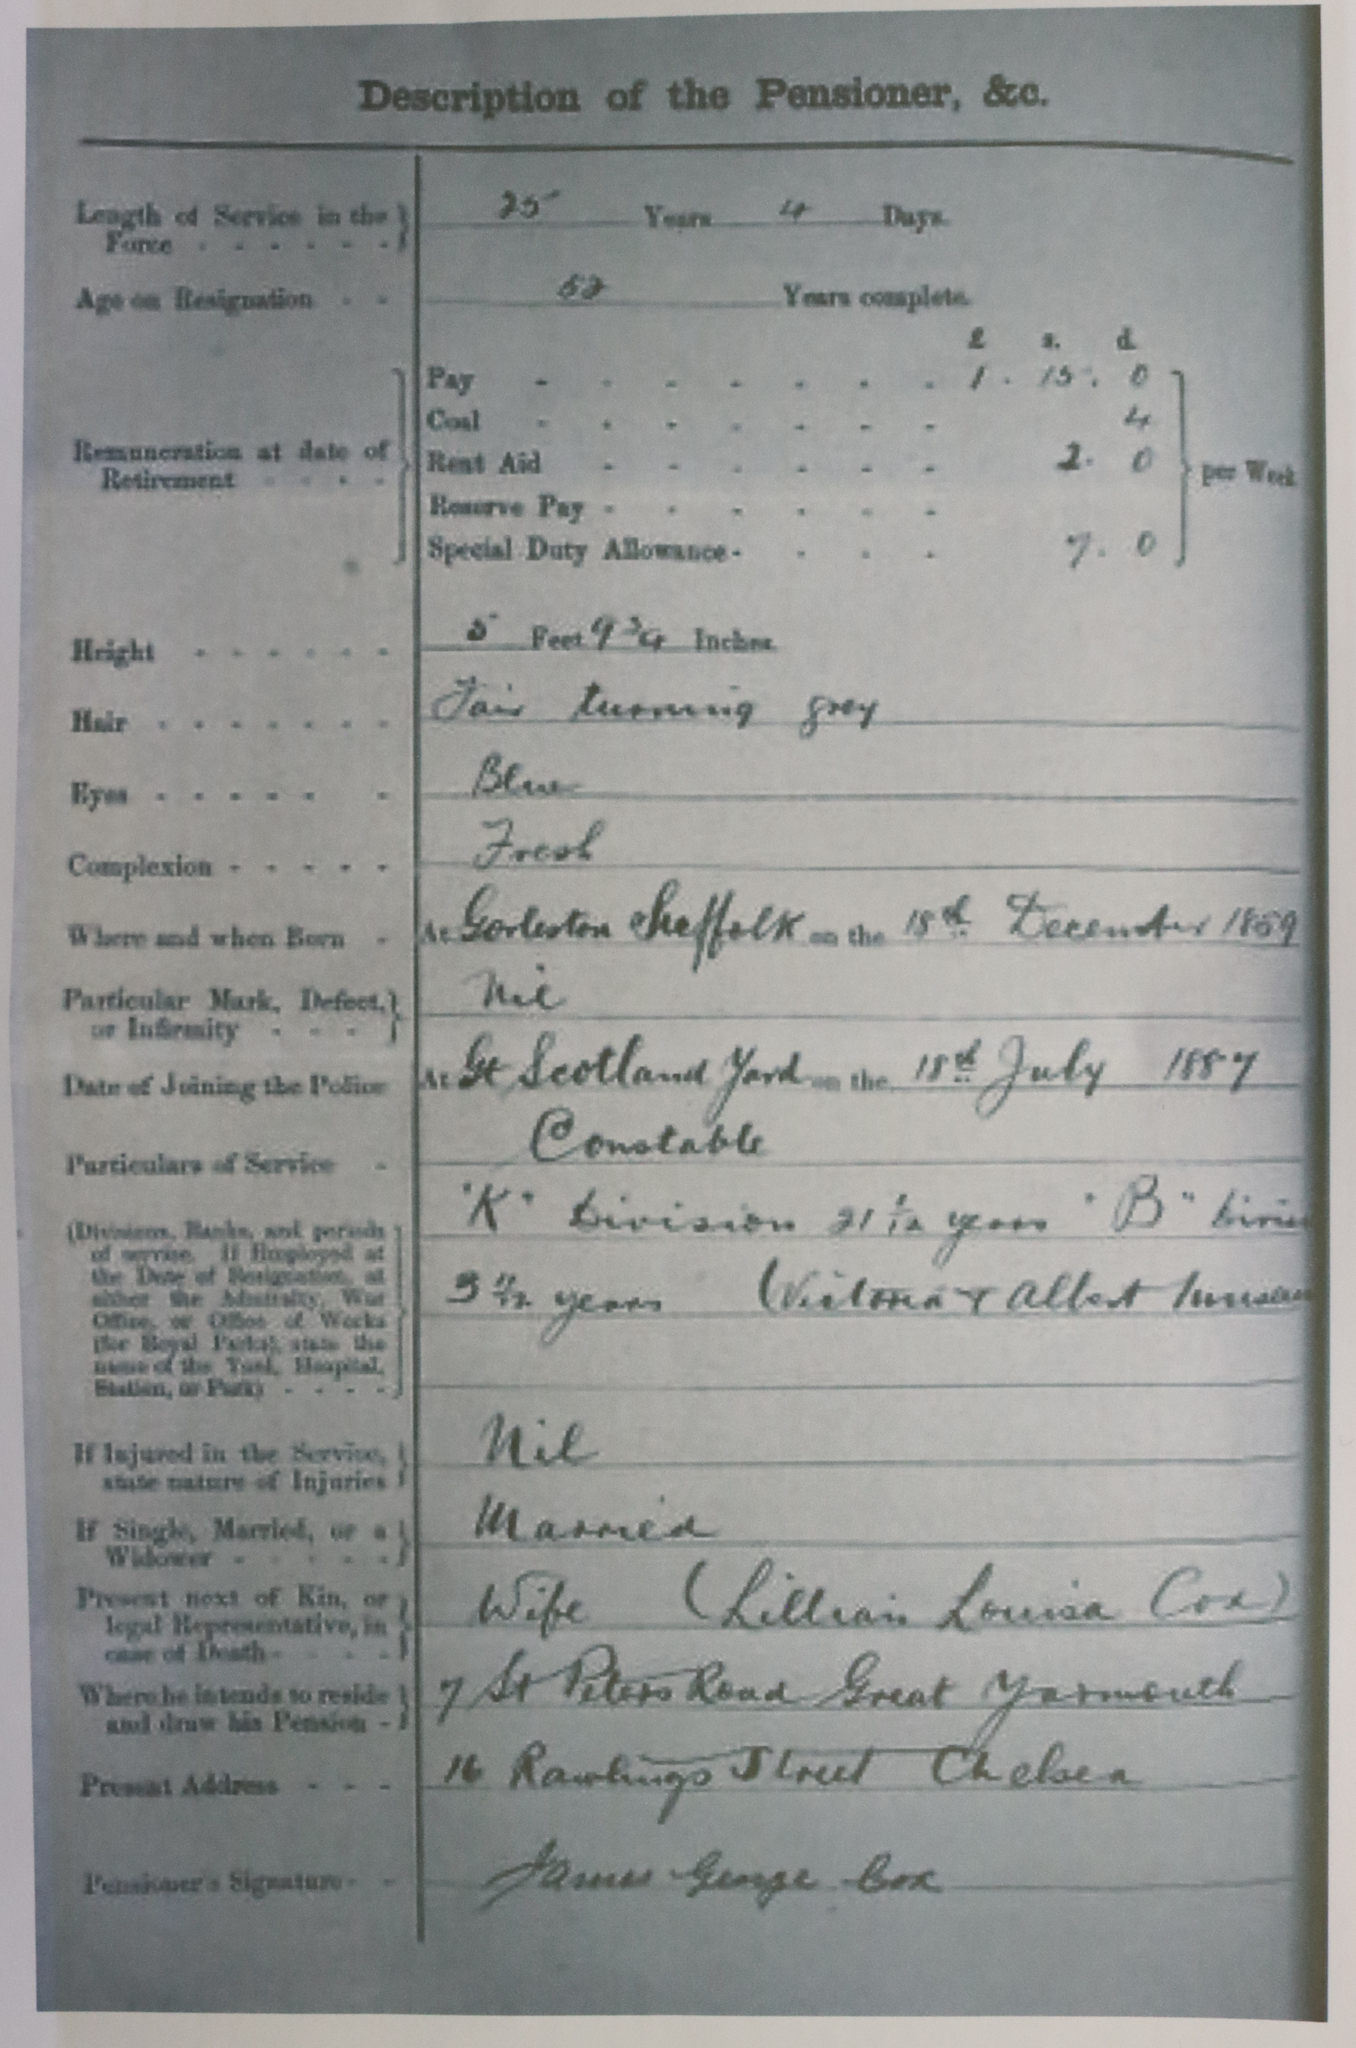 Description of the Pensioner, &c.
Length of Service in the Force - - - - - - 25 Years 4 Days.
Age on Resignation - - 52 Years complete.
£ s. d.
Remuneration at date of Retirement - - - -
Pay - - - - - - - 1 . 15 . 0
Coal - - - - - - - 4
Rent Aid - - - - - - 2 . 0
per Week
Reserve Pay - - - - - -
Special Duty Allowance - - - - 7 . 0
Height - - - - - - 5 Feet 9 3/4 Inches.
Hair - - - - - - - Fair turning grey
Eyes - - - - - - Blue
Complexion - - - - - Fresh
Where and when Born - At Gorleston Suffolk on the 18th December 1859
Particular Mark, Defect, or Infirmity - - - Nil
Date of Joining the Police At Gt Scotland Yard on the 18th July 1887
Particulars of Service - Constable
(Divisions, Ranks, and periods
of service. If Employed at
the Date of Resignation, at
either the Admiralty, War
Office, or Office of Works
(for Royal Parks), state the
name of the Yard, Hospital,
Station, or Park) - - - -
"K" Division 21 1/12 years "B" Divisi
3 11/12 years (Victoria & Albert Museu
If Injured in the Service, state nature of Injuries Nil
If Single, Married, or a Widower - - - - - Married
Present next of Kin, or legal Representative, in case of Death - - - - Wife (Lillian Louisa Cox)
Where he intends to reside and draw his Pension - 7 St Peters Road Great Yarmouth
Present Address - - - 16 Rawlings Street Chelsea
Pensioner's Signature - - James George Cox